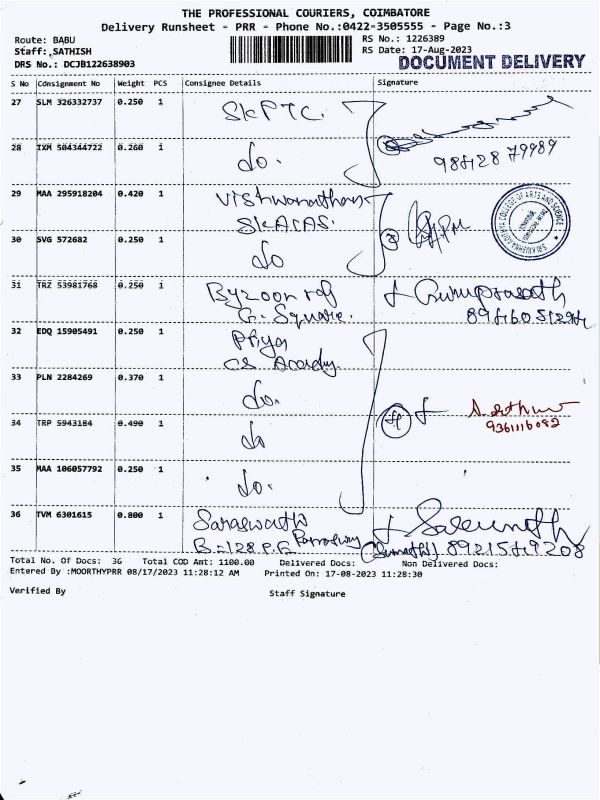 THE PROFESSIONAL COURIERS, COIMBATORE
Delivery Runsheet - PRR - Phone No.:0422-3505555 - Page No.:3
Route: BABU
RS No.: 1226389
Staff: SATHISH
RS Date: 17-Aug-2023
DRS No.: DCJB122638903
DOCUMENT DELIVERY
S No Consignment No Weight PCS Consignee Details Signature
27 SLM 326332737 0.250 1 SKPTC.
28 IXM 504344722 0.260 1 do.
29 MAA 295918204 0.420 1 Viswanathan
SKACAS.
30 SVG 572682 0.250 1 do
SRI KRISHNA ADITHYA COLLEGE OF ARTS AND SCIENCE
31 TRZ 53981768 0.250 1 Guruprasath
G. Square.
32 EDQ 15905491 0.250 1 Priya
CS Academy.
33 PLN 2284269 0.370 1 do.
34 TRP 5943184 0.490 1 do
9361116082
35 MAA 106057792 0.250 1 do.
36 TVM 6301615 0.800 1 Saraswathi
B-128 P.G.
Total No. Of Docs: 36 Total COD Amt: 1100.00 Delivered Docs: Non Delivered Docs:
Entered By :MOORTHYPRR 08/17/2023 11:28:12 AM Printed On: 17-08-2023 11:28:30
Verified By Staff Signature